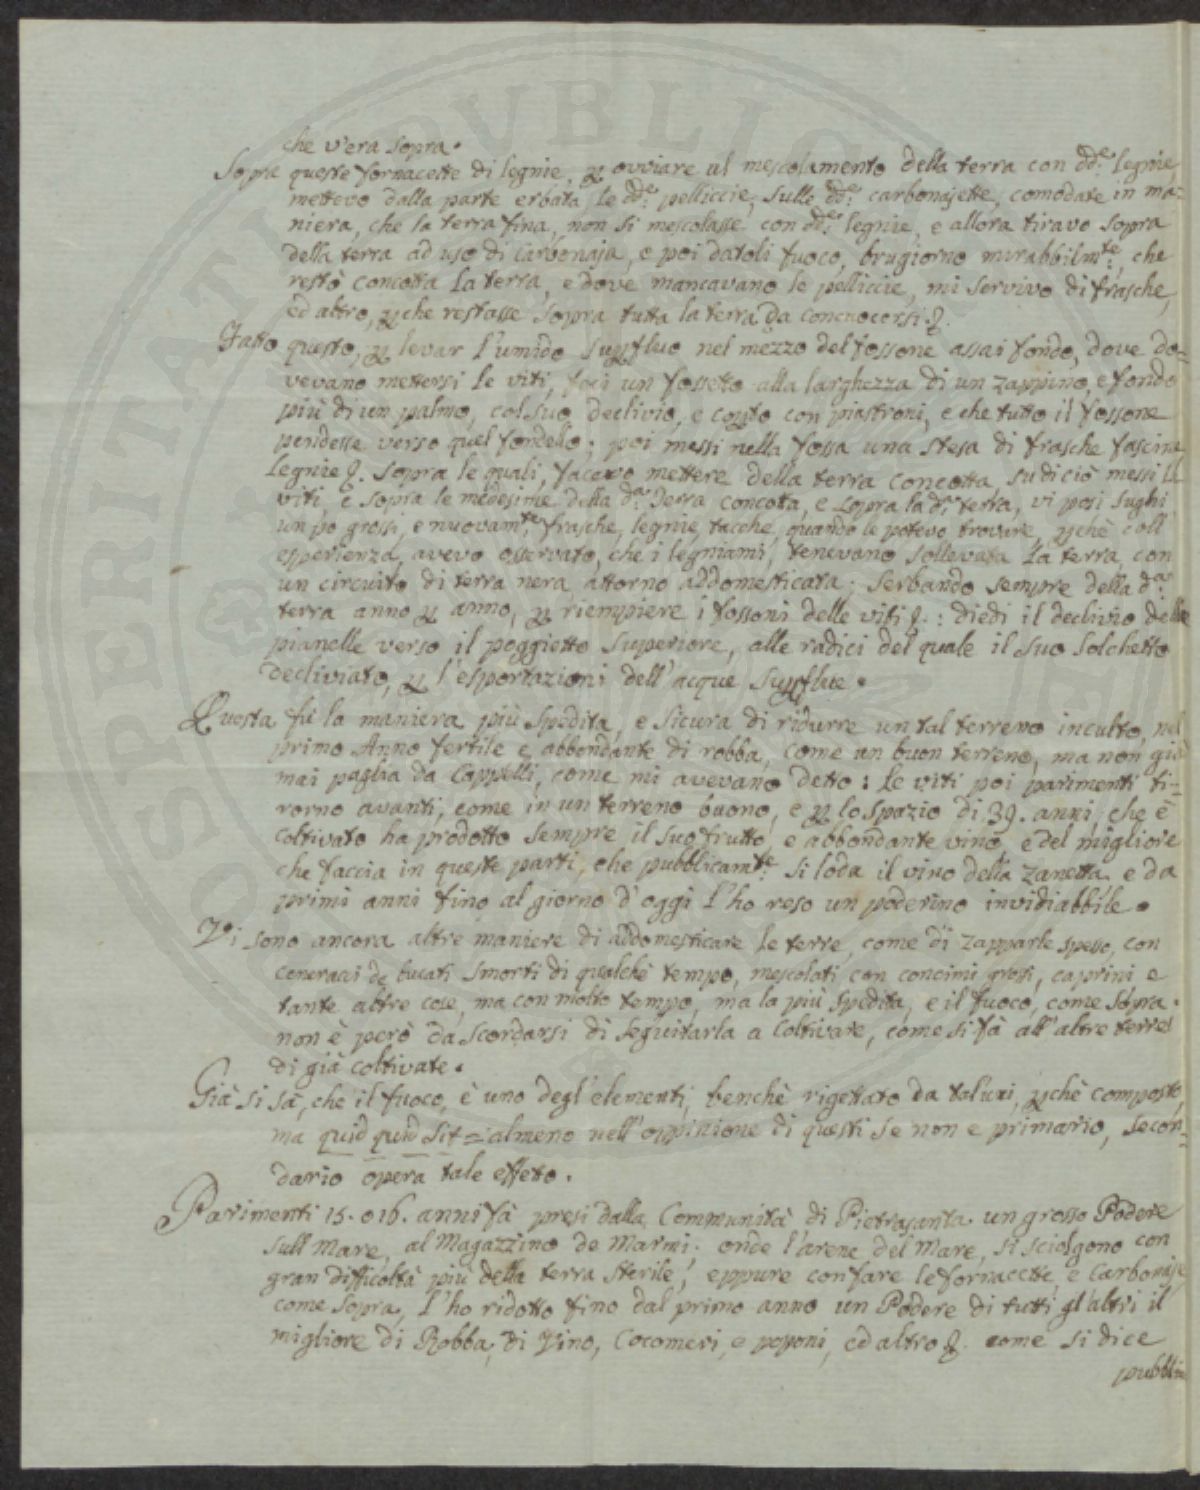 che v'era sopra.
Sopra queste fornacette di legnie, p ovviare al mescolamento della terra con dde: legnie,
mettevo dalla parte erbata, le dde: pelliccie, sulle dde: carbonajette, comodate in ma=
niera, che la terra fina, non si mescolasse con dde: legnie, e allora tiravo sopra
della terra ad uso di Carbonaja, e poi datoli fuoco, brugiorno mirabbilmte:, che
restò concotta la terra, e dove mancavano le pelliccie, mi servivo di frasche,
ed altro, pche restasse sopra tutta la terra da concuocersi &.
Fatto questo, p levar l'umido supfluo nel mezzo del fossone assai fondo, dove do=
vevano mettersi le viti, feci un fossetto alla larghezza di un zappino, e fondo
più di un palmo, col suo declivio, e copto con piastroni, e che tutto il fossone
pendesse verso quel fondello; poi messi nella fossa una stesa di frasche fascine
legnie &. sopra le quali, facevo mettere della terra concotta, su di ciò messi le
viti, e sopra le medesime della da: Terra concota, e sopra la da: terra, vi posi sughi
un po grossi, e nuovamte: frasche, legnie, tacche, quando le potevo trovare, pchè coll'
esperienza, avevo osservato, che i legniami, tenevano sollevata la terra, con
un circuito di terra nera attorno addomesticata; serbando sempre della da:
terra anno p anno, p riempiere i fossoni delle viti &.: diedi il declivio delle
pianelle verso il poggietto superiore, alle radici del quale il suo solchetto
decliviato, p l'esportazioni dell'acque supflue.
Questa fù la maniera più spedita, e sicura di ridurre un tal terreno inculto, nel
primo Anno fertile e abbondante di robba, come un buon terreno, ma non già
mai paglia da Cappelli, come mi avevano detto: le viti poi parimenti ti=
rorno avanti, come in un terreno buono, e p lo spazio di 39. anni, che è
coltivato ha prodotto sempre il suo frutto, e abbondante vino, e del migliore
che faccia in queste parti, che pubblicamte: si loda il vino della Zanetta e da
primi anni fino al giorno d'oggi l'ho reso un poderino invidiabbile.
Vi sono ancora altre maniere di addomesticare le terre, come di zapparle spesso, con
ceneracci de bucati smorti di qualche tempo, mescolati con concimi grossi, caprini e
tante altre cose, ma con molto tempo, ma la più spedita, e il fuoco, come sopra.
non è però da scordarsi di seguitarla a coltivare, come si fà all'altre terre
di già coltivate.
Già si sà, che il fuoco, è uno degl'elementi, benchè rigettato da taluni, pchè composto,
ma quid quid sit = almeno nell'oppinione di questi se non e primario, secon=
dario opera tale effetto.
Parimenti 15. o 16. anni fà presi dalla Communità di Pietrasanta un grosso Podere
sull Mare, al Magazzino de Marmi. onde l'arene del Mare, si sciolgono con
gran difficoltà più della terra sterile, eppure con fare le fornacette, e Carbonaje
come sopra, l'ho ridotto fino dal primo anno un Podere di tutti gl'altri il
migliore di Robba, di Vino, Cocomeri, e poponi, ed altro &. come si dice
pubblica